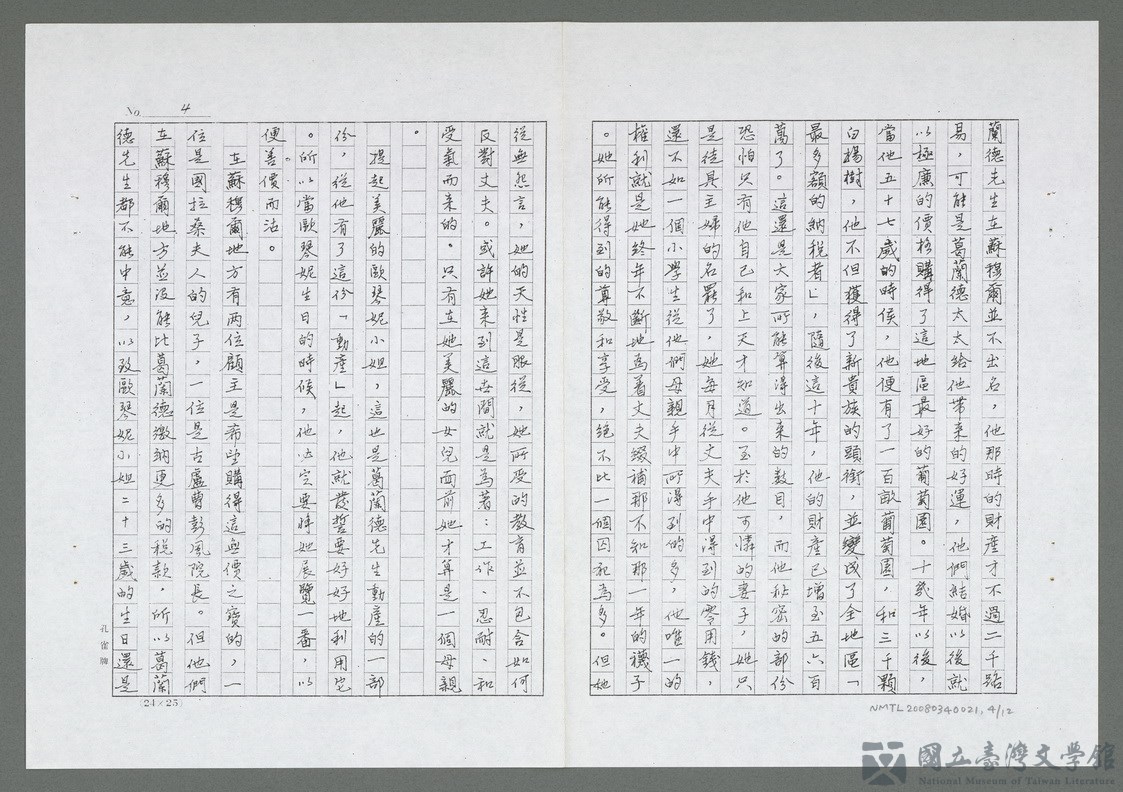 蘭德先生在蘇穆爾並不出名，他那時的財產才不過二千路
易，可能是葛蘭德太太給他帶來的好運，他們結婚以後就
以極廉的價格購得了這地區最好的葡萄園。十幾年以後，
當他五十七歲的時候，他便有了一百畝葡萄園，和三千顆
白楊樹，他不但獲得了新貴族的頭銜，並變成了全地區「
最多額的納稅者」，隨後這十年，他的財產已增至五六百
萬了。這還是大家所能算得出來的數目，而他秘密的部份
恐怕只有他自己和上天才知道。至於他可憐的妻子，她只
是徒具主婦的名罷了，她每月從丈夫手中得到的零用錢，
還不如一個小學生從他們母親手中所得到的多，他唯一的
權利就是她終年不斷地為著丈夫綴補那不知那一年的襪子
。她所能得到的尊敬和享受，絕不比一個囚犯為多。但她
從無怨言，她的天性是服從，她所受的教育並不包含如何
反對丈夫。或許她來到這世間就是為著：工作、忍耐、和
受氣而來的。只有在她美麗的女兒面前她才算是一個母親
。
提起美麗的歐琴妮小姐，這也是葛蘭德先生動產的一部
份，從他有了這份「動產」起，他就發誓要好好地利用它
。所以當歐琴妮生日的時候，他必定要将她展覽一番，以
便善價而沽。
在蘇穆爾地方有两位顧主是希望購得這無價之寶的，一
位是國拉桑夫人的兒子，一位是古盧曹彭風院長。但他們
在蘇穆爾地方並沒能比葛蘭德繳納更多的稅款，所以葛蘭
德先生都不能中意，以致歐琴妮小姐二十三歲的生日還是
No. 4
孔雀牌
(24×25)
NMTL20080340021, 4/12
國立臺灣文學館
National Museum of Taiwan Literature